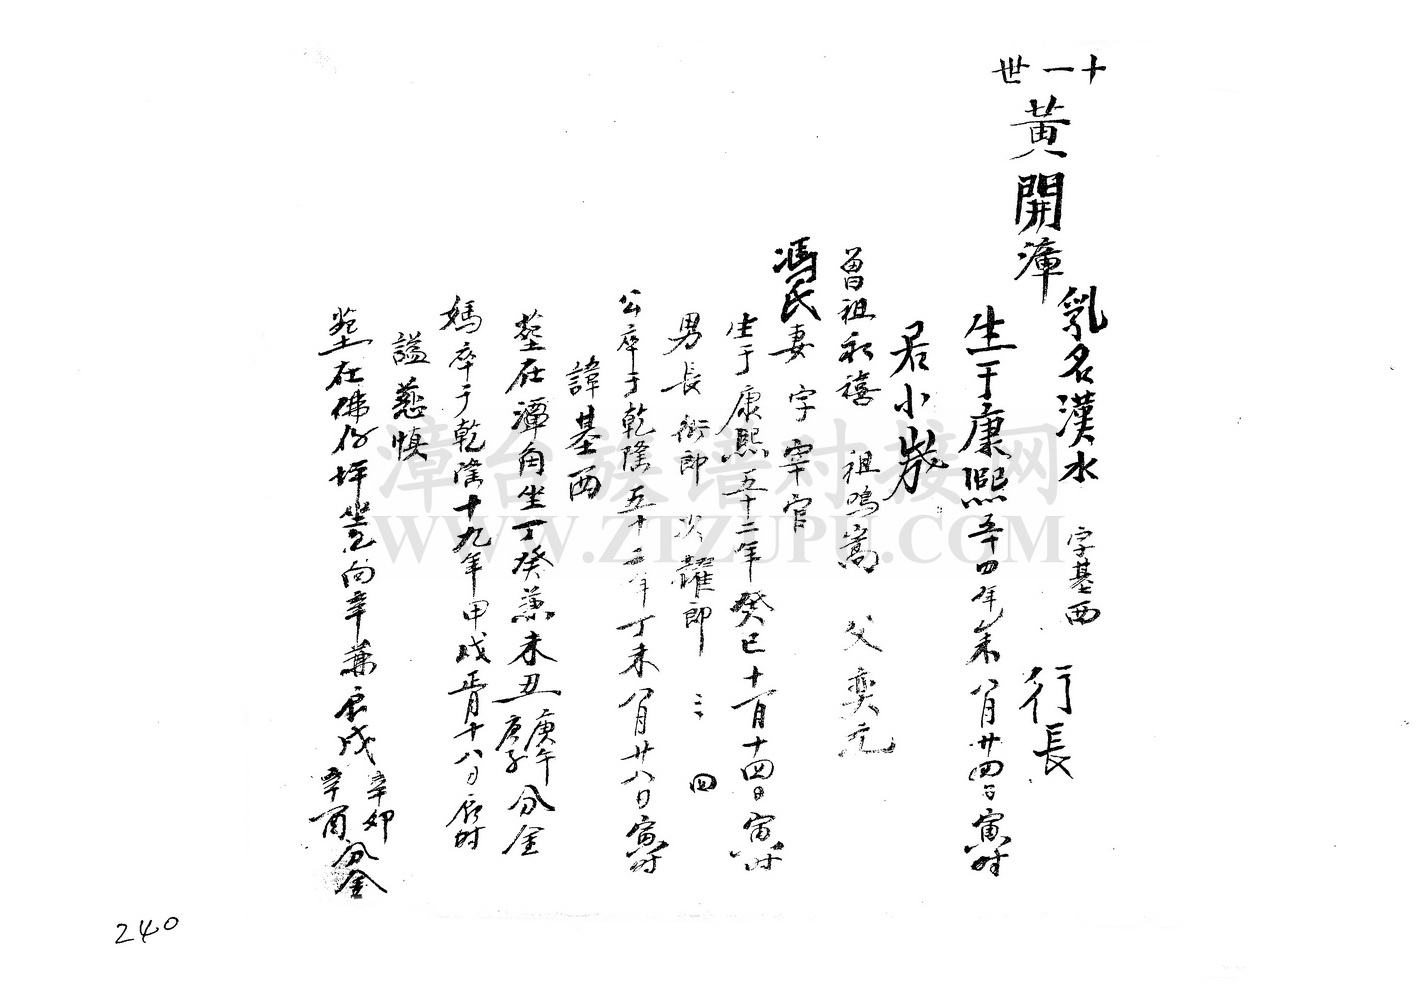 十一世
黃開漳
乳名漢水 字基西 行長
生于康熙五十四年未八月廿四日寅时
居小嵗
曾祖永禧 祖鳴嵩 父奕元
馮氏妻 字宰官
生于康熙五十二年癸巳十一月十四日寅时
男長衔郎 次耀郎 三 四
公卒于乾隆五十二年丁未八月廿八日寅时
諱基西
塋在潭角坐丁癸兼未丑 庚午 庚子 分金
媽卒于乾隆十九年甲戌正月十八日辰时
謚慈慎
塋在佛仔坪坐乙向辛兼辰戌 辛卯 辛酉 分金
漳台族谱对接网
WWW.ZTZUPU.COM
240